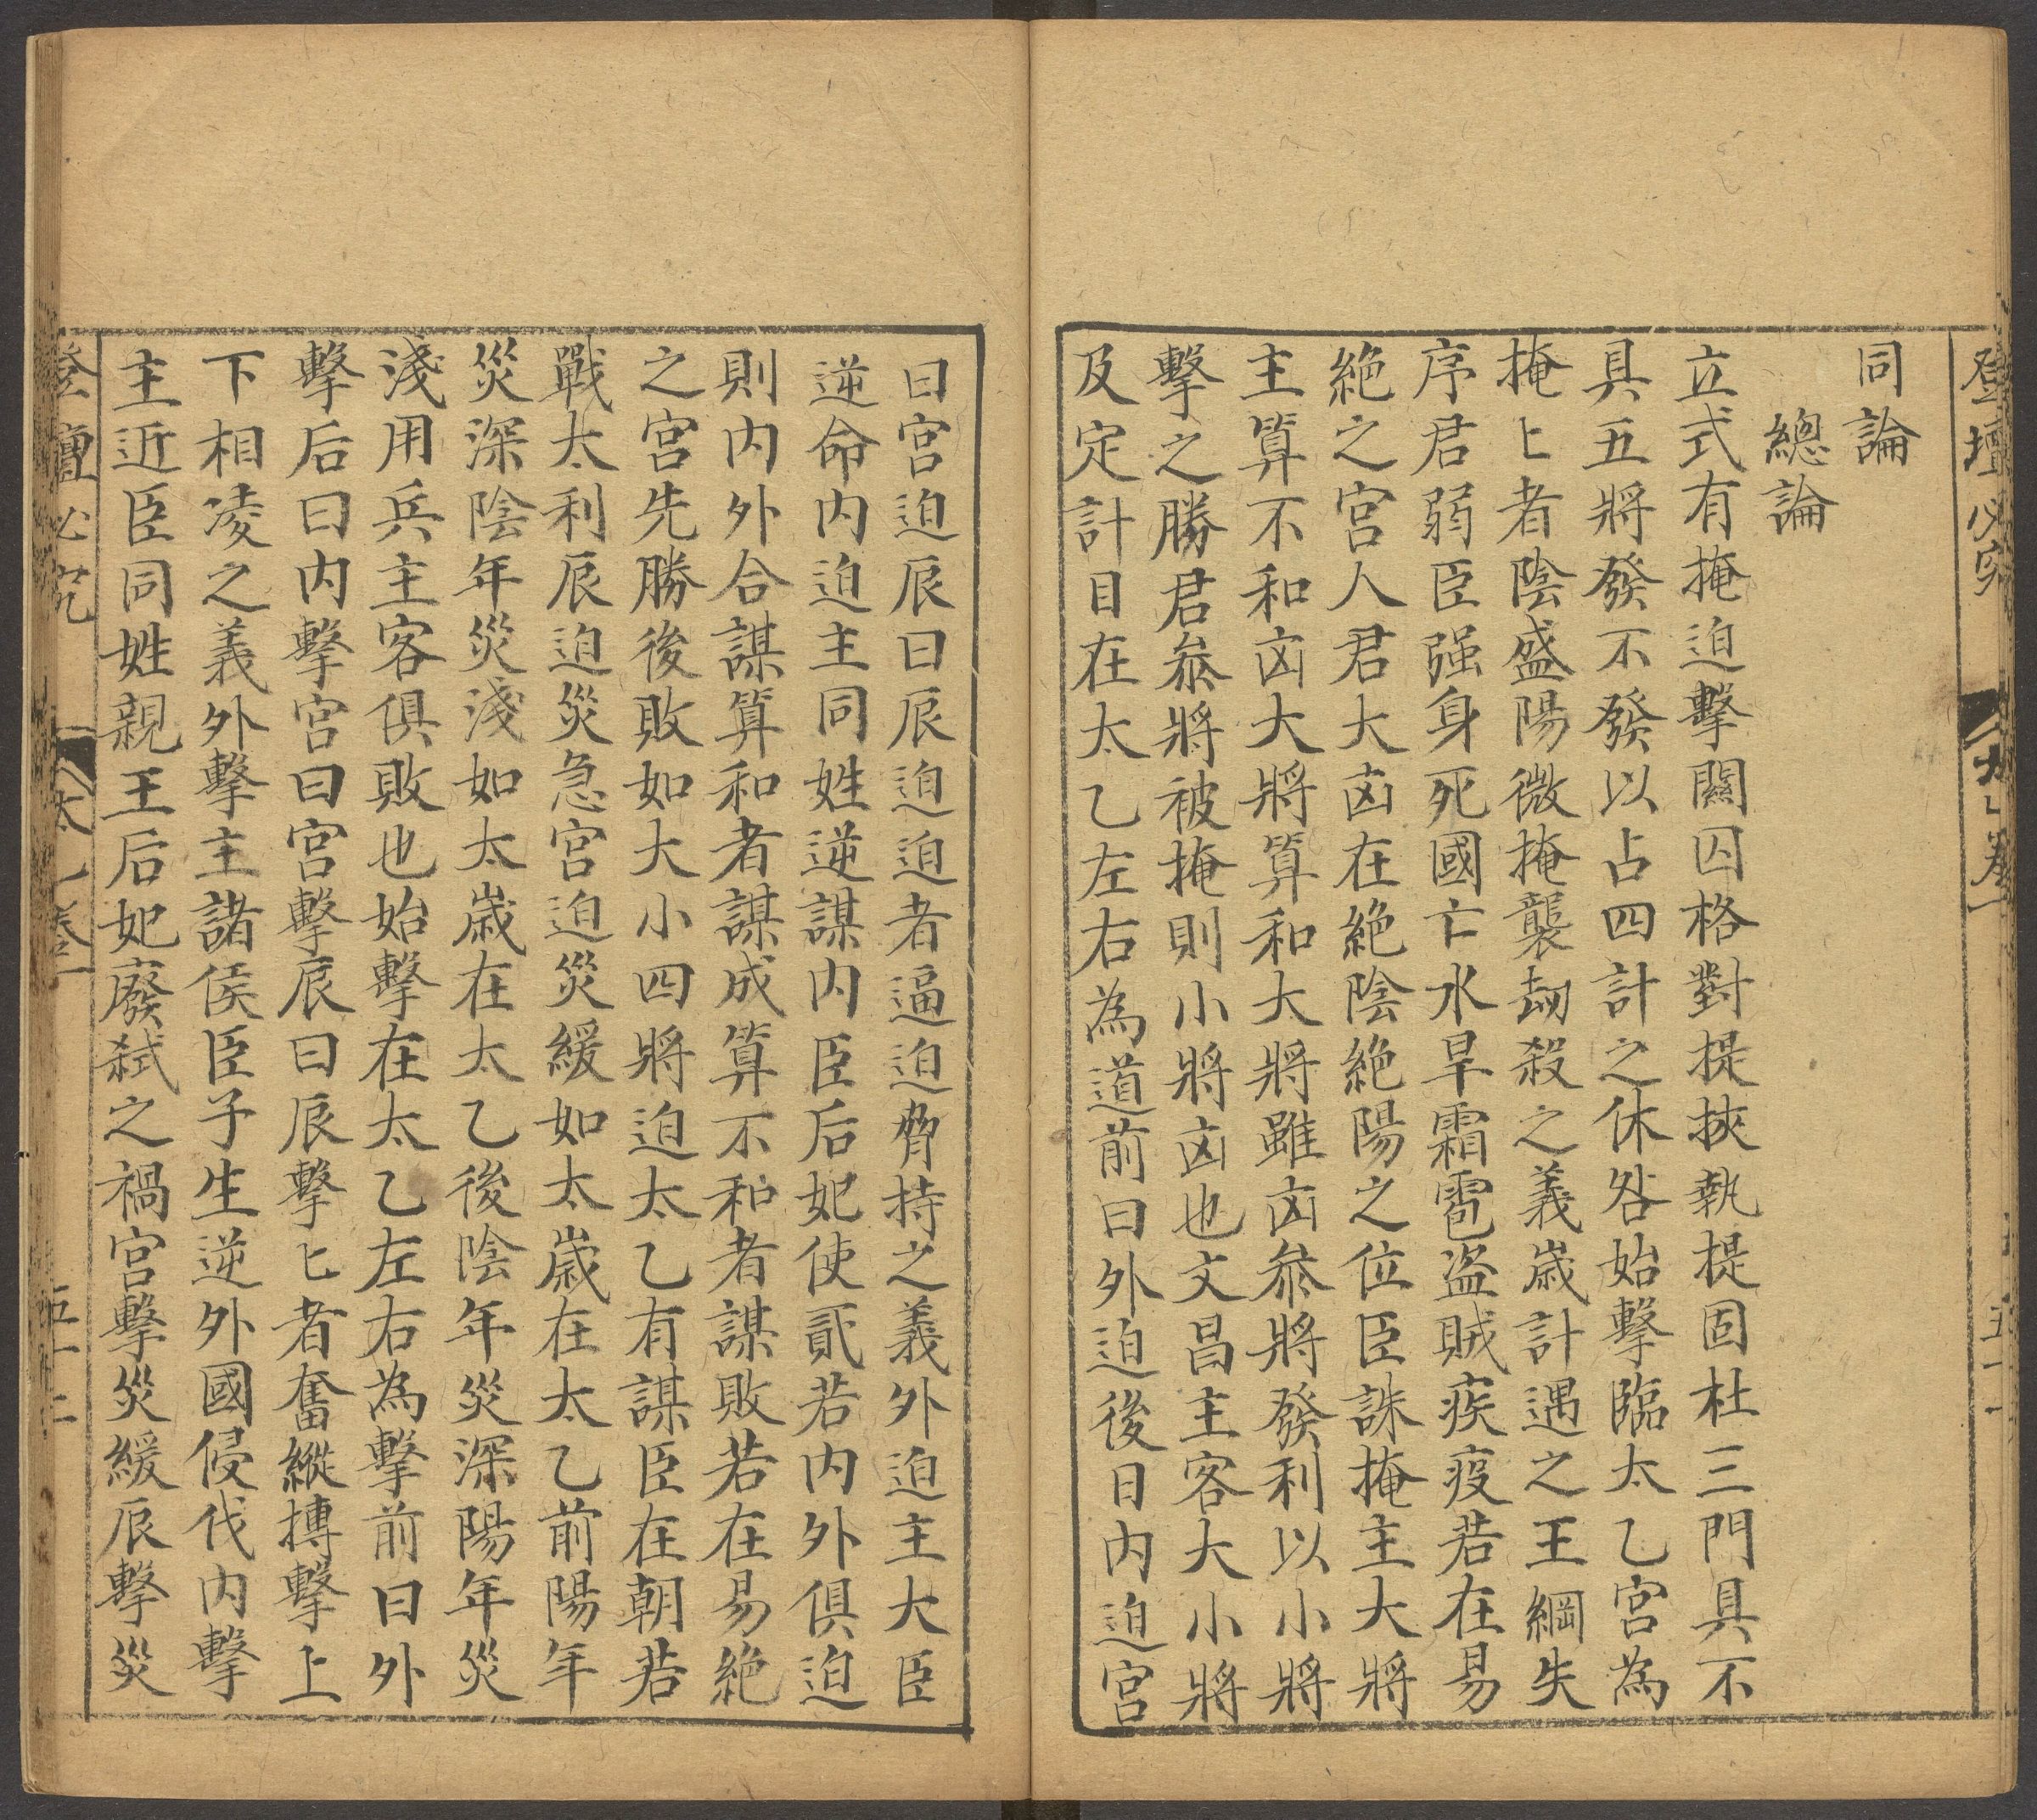 登壇必究
同論
總論
立式有掩迫擊關囚格對提挾執提固杜三門具不
具五將發不發以占四計之休咎始擊臨太乙宮為
掩匕者陰盛陽微掩襲刼殺之義歲計遇之王綱失
序君弱臣强身死國亡水旱霜雹盗賊疾疫若在易
絶之宮人君大凶在絶陰絶陽之位臣誅掩主大將
主算不和凶大將算和大將雖凶叅將發利以小將
擊之勝君叅將被掩則小將凶也文昌主客大小將
及定計目在太乙左右為道前曰外迫後曰内迫宮
曰宮迫辰曰辰迫迫者逼迫脅持之義外迫主大臣
逆命内迫主同姓逆謀内臣后妃使貳若内外俱迫
則内外合謀算和者謀成算不和者謀敗若在易絶
之宮先勝後敗如大小四將迫太乙有謀臣在朝若
戰太利辰迫災急宮迫災緩如太歲在太乙前陽年
災深陰年災淺如太歲在太乙後陰年災深陽年災
淺用兵主客俱敗也始擊在太乙左右為擊前曰外
擊后曰内擊宮曰宮擊辰曰辰擊匕者奮縱搏擊上
下相凌之義外擊主諸侯臣子生逆外國侵伐内擊
主近臣同姓親王后妃廢弑之禍宮擊災緩辰擊災
登壇必究 太乙卷一 五十二